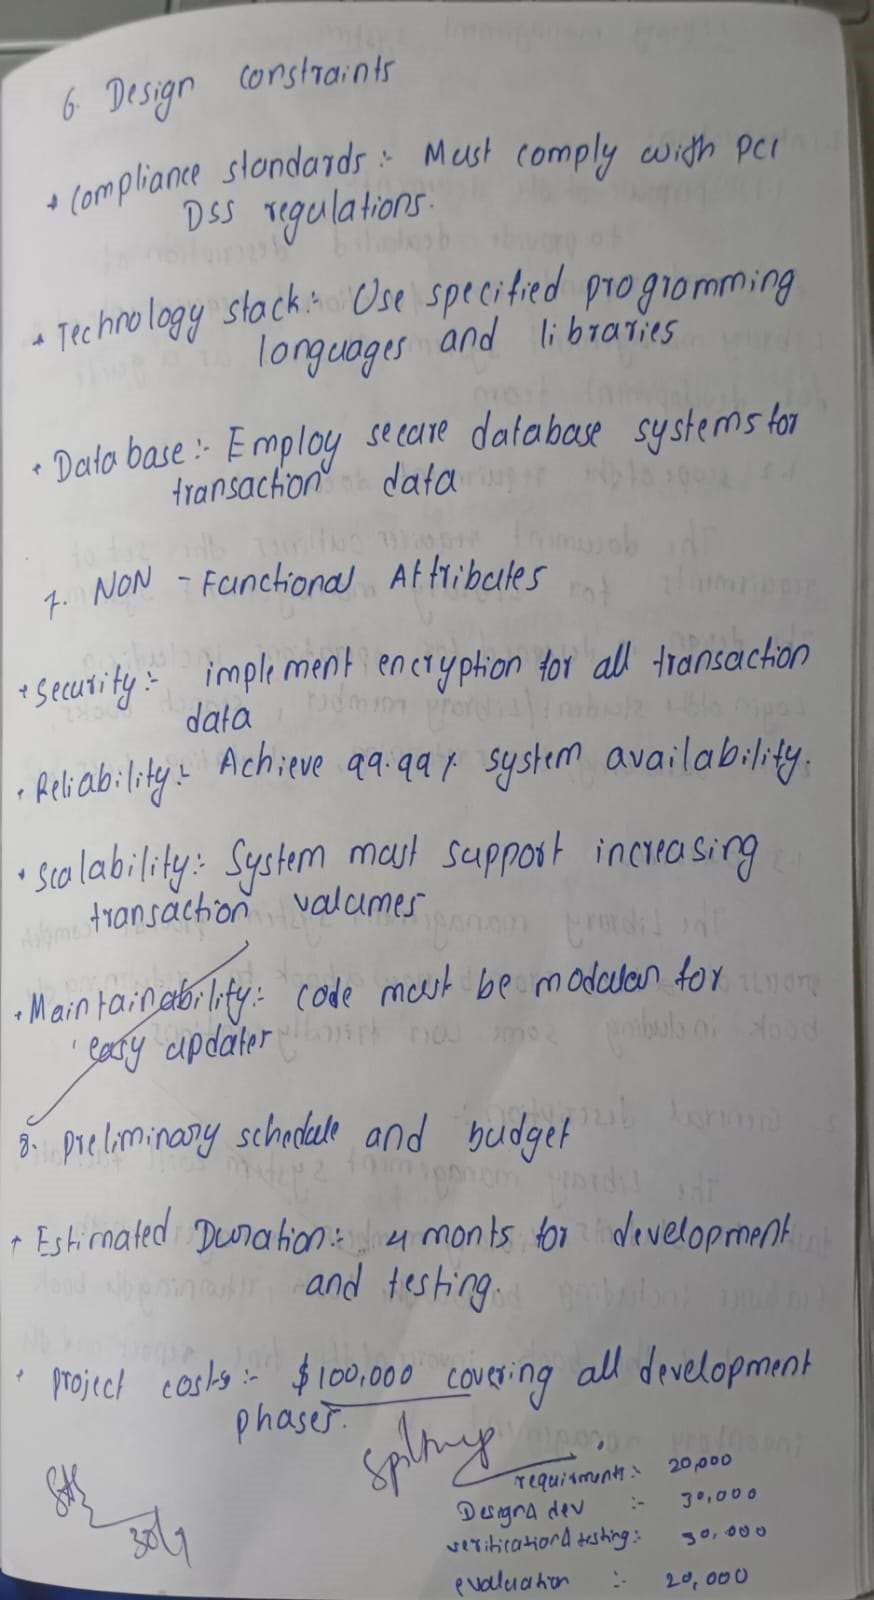 6. Design constraints
* Compliance standards :- Must comply with PCI
DSS regulations.
* Technology stack :- Use specified programming
languages and libraries
* Database :- Employ secure database systems for
transaction data
7. NON - Functional Attributes
* Security :- implement encryption for all transaction
data
* Reliability :- Achieve 99.99% system availability.
* Scalability :- System must support increasing
transaction valumes
* Maintainability :- code must be modular for
easy updates
8. Preliminary schedule and budget
* Estimated Duration :- 4 monts for development
and testing.
* project costs :- $100,000 covering all development
phases.
requirments :- 20,000
Design & dev :- 30,000
verification & testing :- 30,000
evaluation :- 20,000